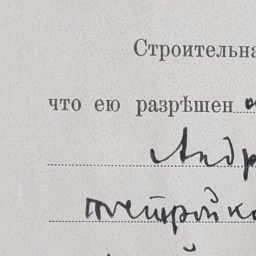 Строительна
что ею разрѣшен
Андр
постройка